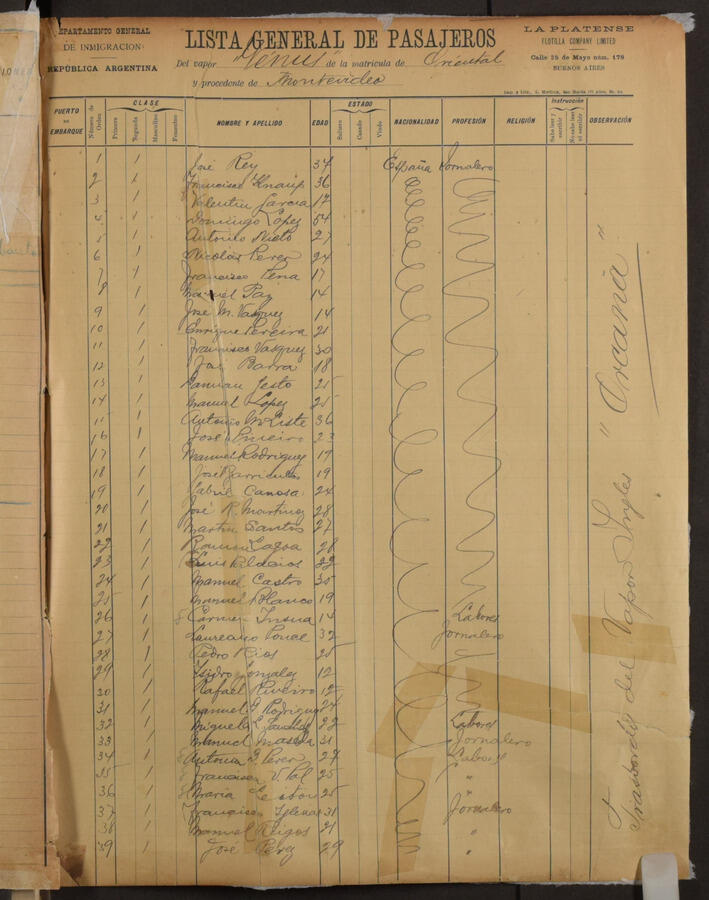 DEPARTAMENTO GENERAL
DE INMIGRACION
REPÚBLICA ARGENTINA
LISTA GENERAL DE PASAJEROS
Del vapor "Vénus" de la matricula de Oriental
y procedente de Montevideo
LA PLATENSE
FLOTILLA COMPANY LIMITED
Calle 25 de Mayo núm. 178
BUENOS AIRES
PUERTO DE EMBARQUE Número de Orden CLASE Primera Segunda Masculino Femenino NOMBRE Y APELLIDO EDAD ESTADO Soltero Casado Viudo NACIONALIDAD PROFESIÓN RELIGIÓN Instrucción Sabe leer y escribir No sabe leer ni escribir OBSERVACIÓN
1 / José Rey 34 España Jornalero
2 / Francisco 36
3 / Valentin Garcia 17
4 / Domingo Lopez 54
5 / Antonio Nieto 27
6 / Nicolás Perez 24
7 / Francisco Pena 17
8 / Manuel Paz 14
9 / José M. Vasquez 14
10 / Enrique Pereira 21
11 / Francisco Vasquez 30
12 / José Barra 18
13 / 25
14 / Manuel Lopez 25
15 / Antonio 36
16 / José 23
17 / Manuel Rodriguez 19
18 / José 19
19 / Gabriel Canosa 24
20 / José R. Martinez 28
21 / Martin Santos 27
22 / Roman 28
23 / Luis 22
24 / Manuel Castro 35
25 / Manuel Blanco 19
26 / Carmen Insua 14 Labores
27 / Laureano 32 Jornalero
28 / Pedro Rios 25
29 / Isidro Gonzalez 12
30 / Rafael Riveiro 12
31 / Manuel G. Rodriguez 24
32 / Miguela E. Sanchez 22 Labores
33 / Manuel 31 Jornalero
34 / Antonia G. Perez 27 Labores
35 / Francisca V. 25 "
36 / Maria 25 "
37 / Francisco Iglesias 31 Jornalero
38 / Manuel 21 "
39 / José Perez 29 "
Trasbordo del Vapor Ingles "Orcana"